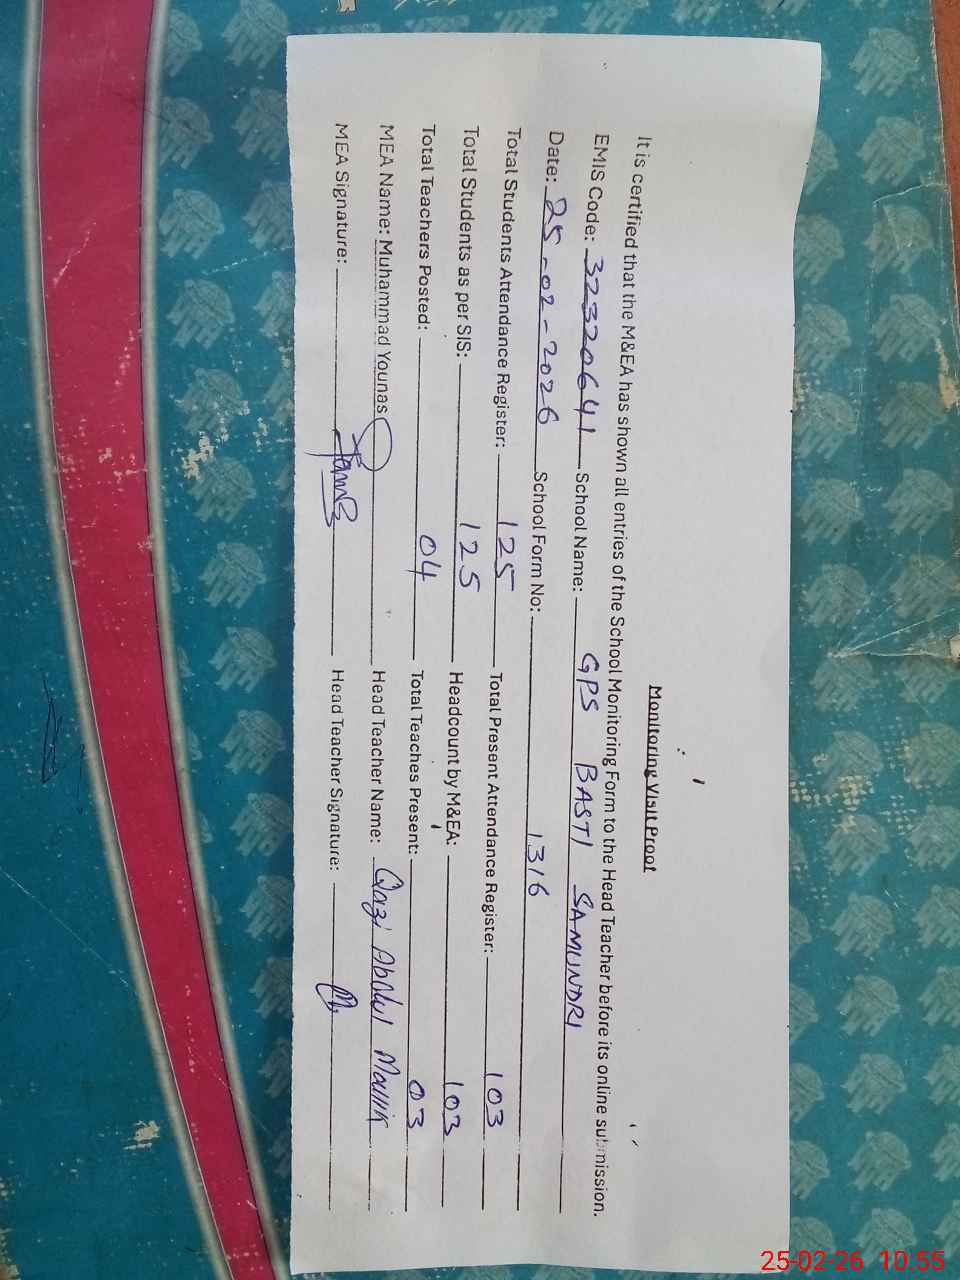 Monitoring Visit Proof
It is certified that the M&EA has shown all entries of the School Monitoring Form to the Head Teacher before its online submission.
EMIS Code: 32320641 School Name: GPS BASTI SAMUNDRI
Date: 25-02-2026 School Form No: 1316
Total Students Attendance Register: 125 Total Present Attendance Register: 103
Total Students as per SIS: 125 Headcount by M&EA: 103
Total Teachers Posted: 04 Total Teaches Present: 03
MEA Name: Muhammad Younas Head Teacher Name: Qazi Abdul Malik
MEA Signature: Head Teacher Signature:
25-02-26 10:55